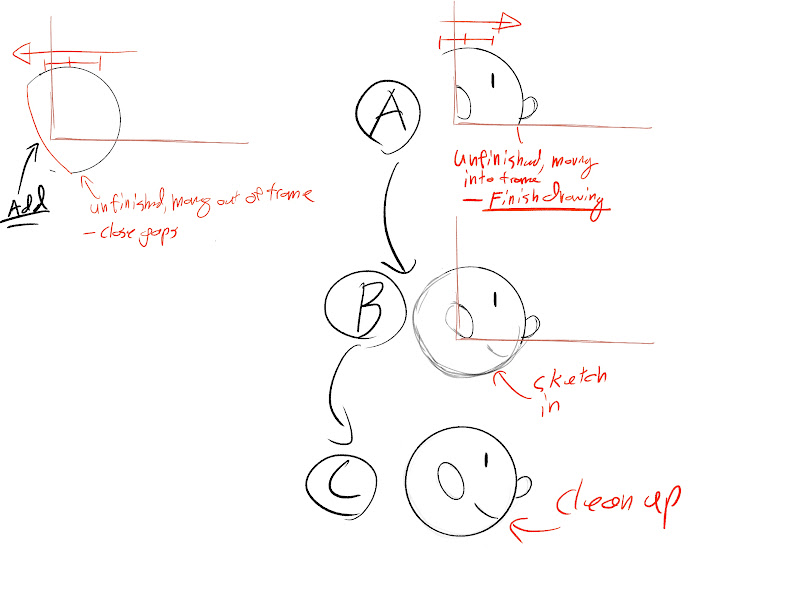 Add
unfinished, moving out of frame
- close gaps
A
unfinished, moving
into frame
- Finish drawing
B
sketch
in
C
clean up